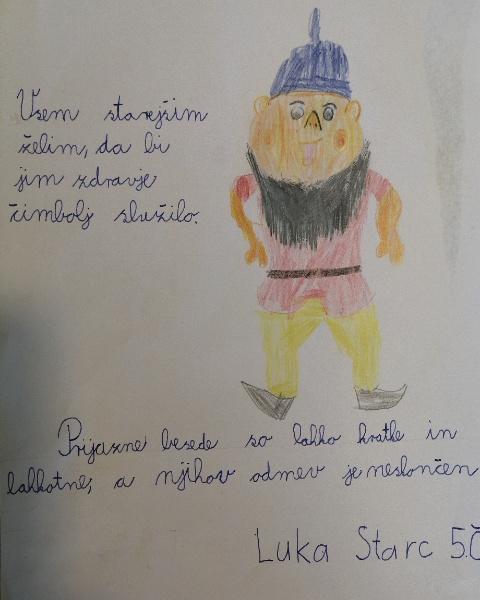 Vsem starejšim
želim, da bi
jim zdravje
čimbolj služilo.
Prijazne besede so lahko kratke in
lahkotne, a njihov odmev je neskončen
Luka Starc 5.Č